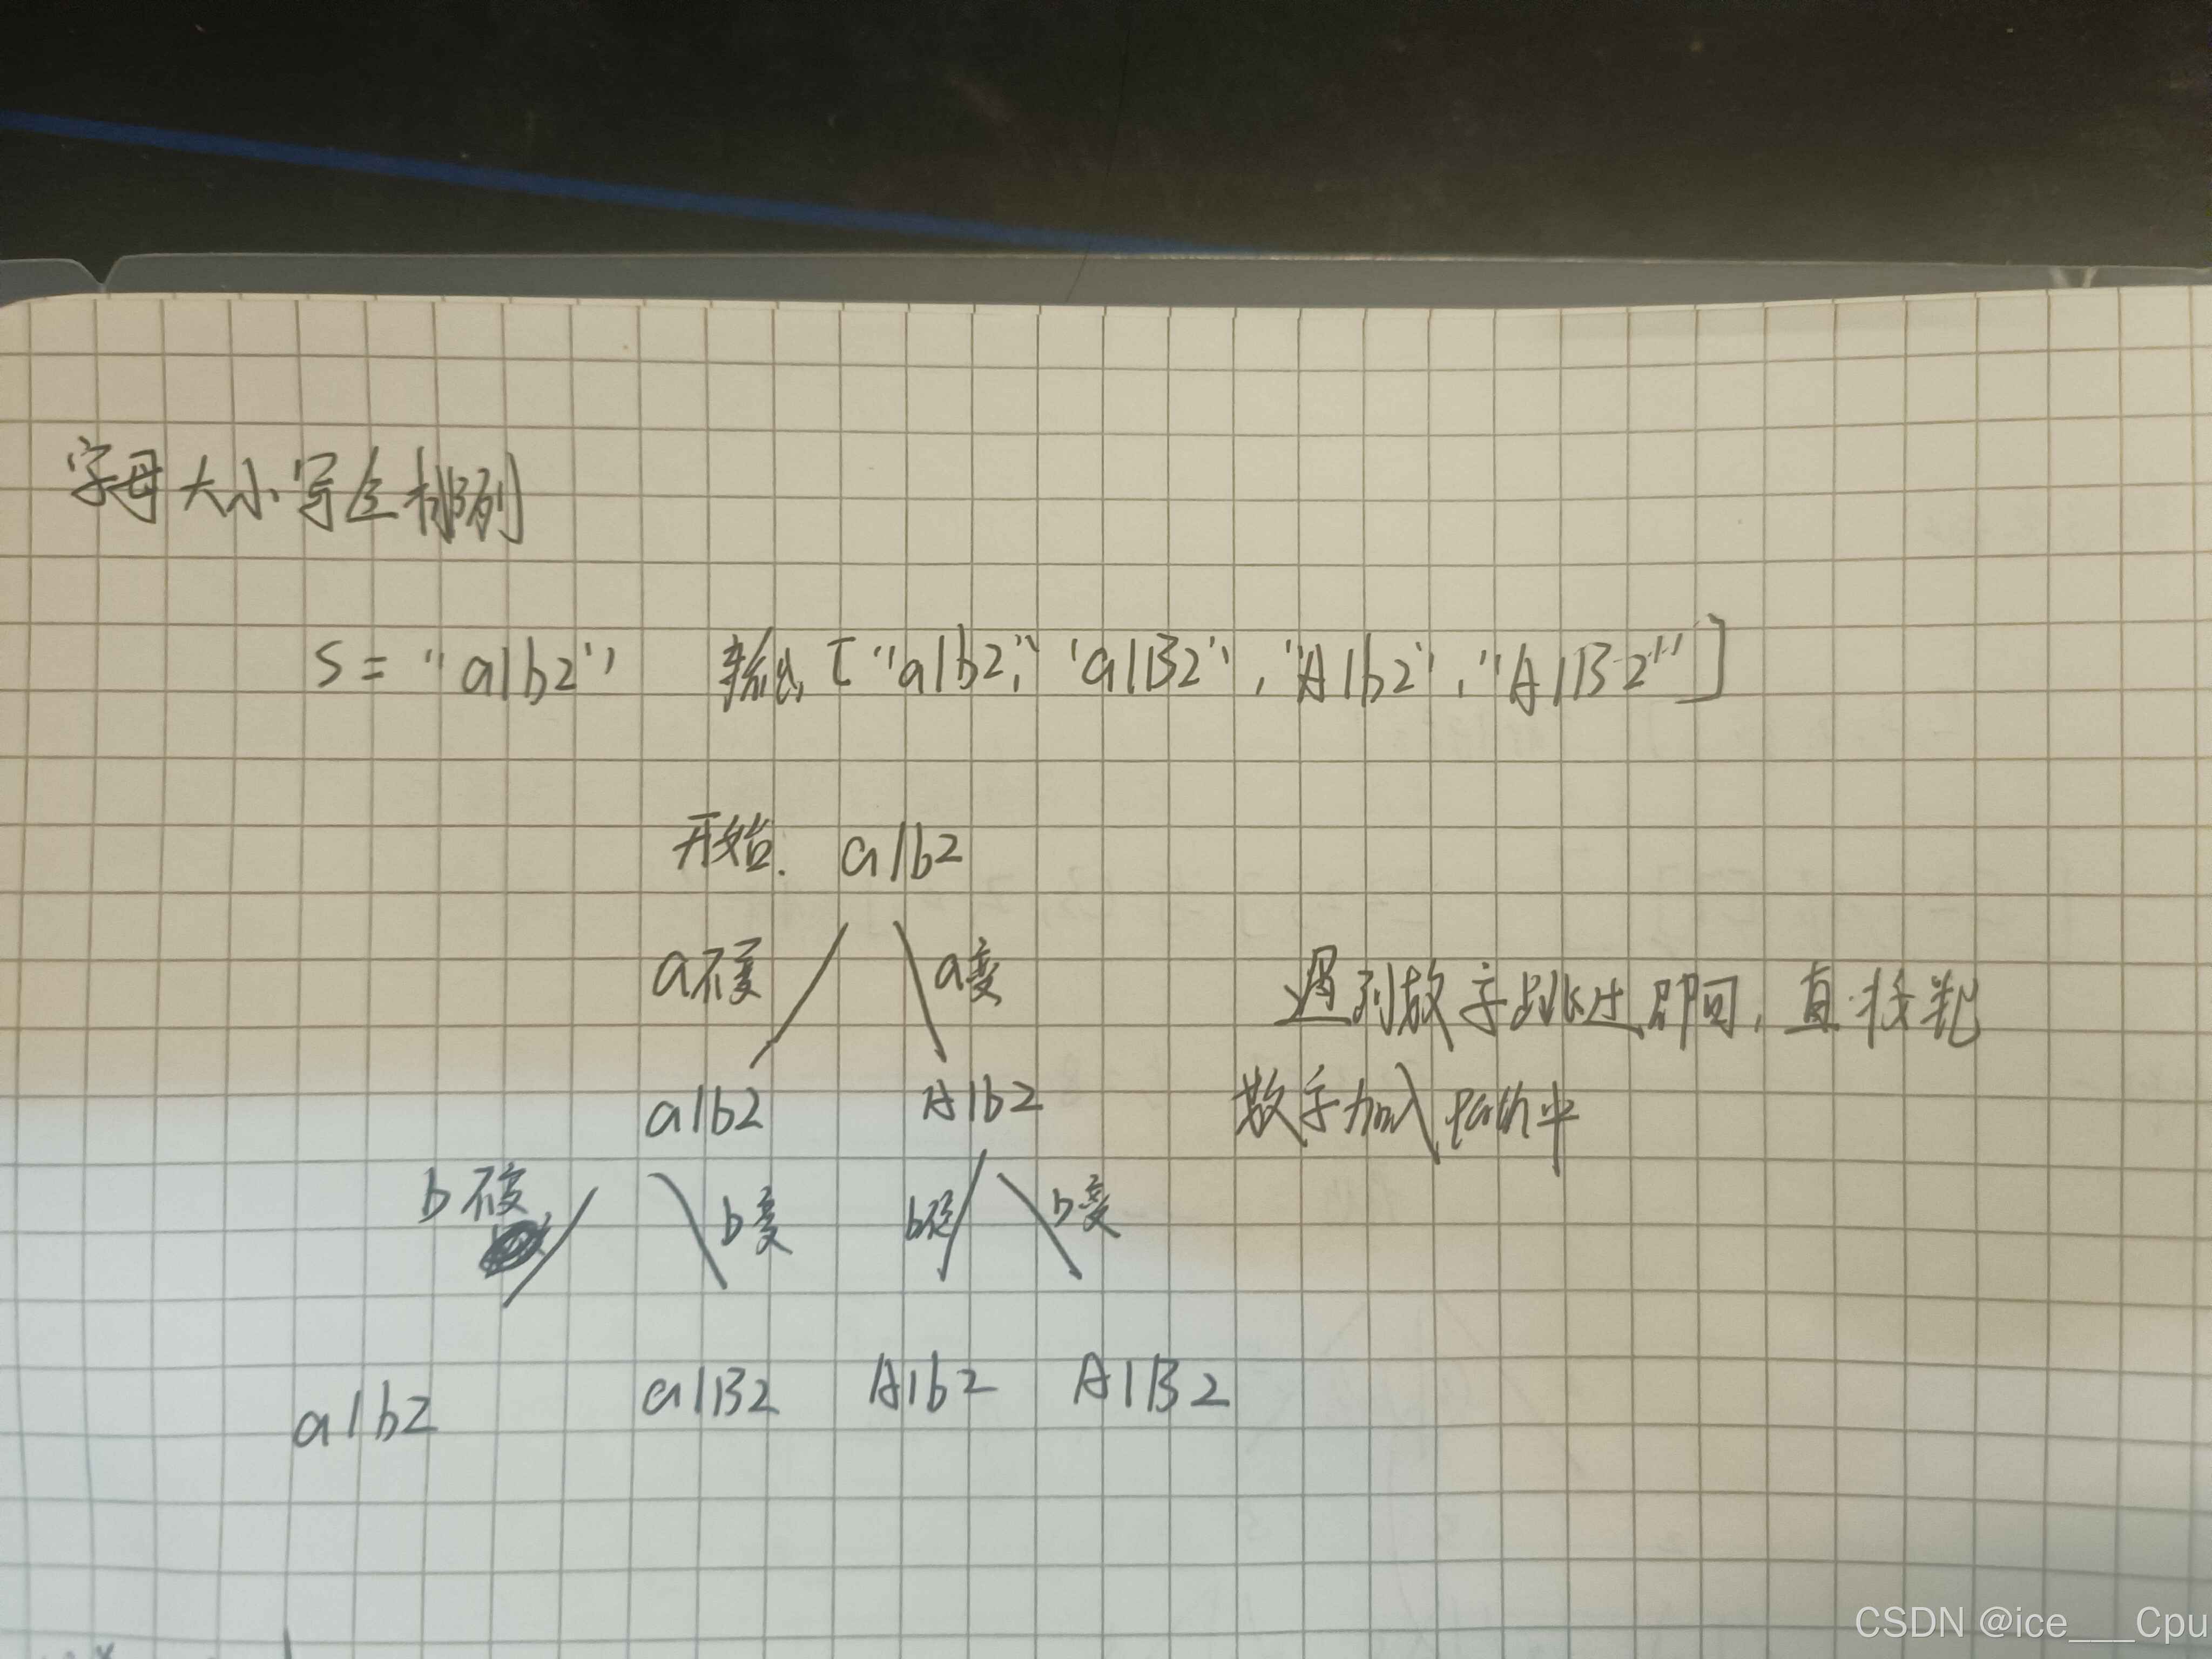 字母大小写全排列
S = "a1b2" 输出 ["a1b2", "a1B2", "A1b2", "A1B2"]
开始: a1b2
a不变 a变
遇到数字跳过即可, 直接把
数字加入path中
a1b2 A1b2
b不变 b变 b不变 b变
a1b2 a1B2 A1b2 A1B2
CSDN @ice___Cpu